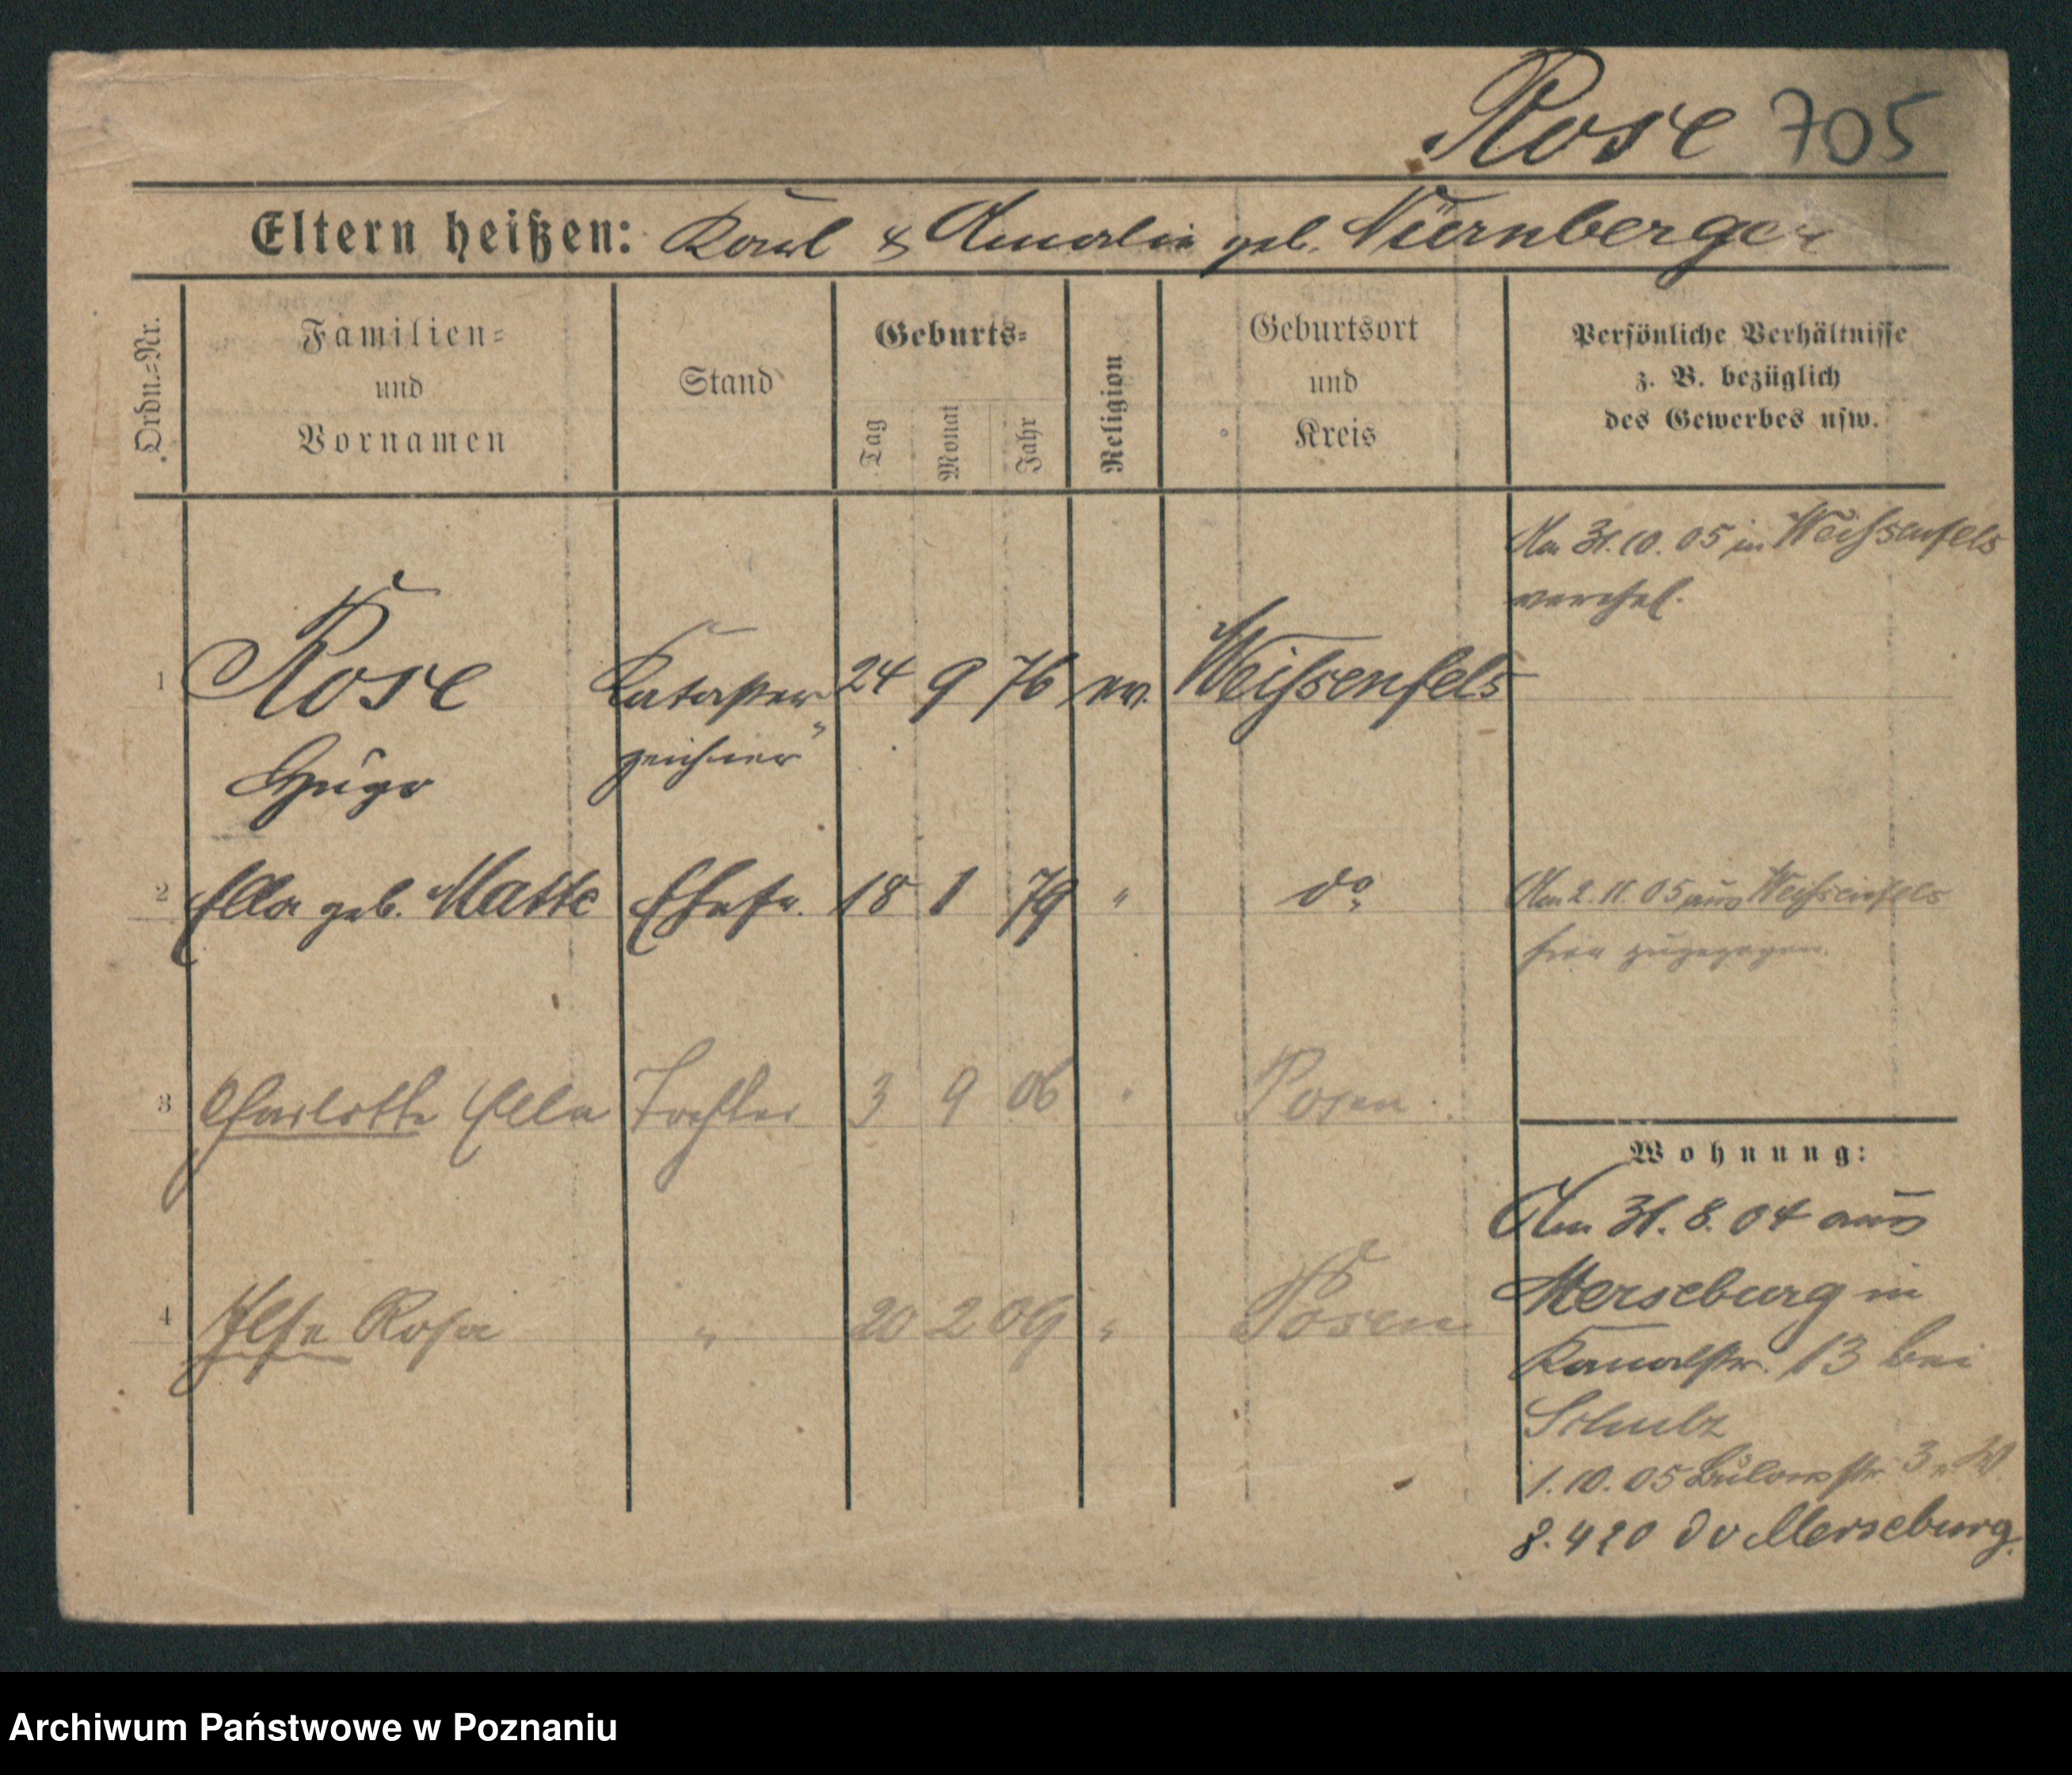 Rose 705
Eltern heißen: Karl & Amalie geb. Nürnberger
Ordn.-Nr.
Familien-
und
Vornamen
Stand
Geburts-
Tag
Monat
Jahr
Religion
Geburtsort
und
Kreis
Persönliche Verhältnisse
z. B. bezüglich
des Gewerbes usw.
Am 31.10.05 in Weissenfels
verehel.
1 Rose Kataster- 24 9 76 ev. Weissenfels
Hugo zeichner
2 Ella geb. Matte Ehefr. 18 1 79 " do
Am 2.11.05 aus Weissenfels
hier zugezogen.
3 Charlotte Ella Tochter 3 9 06 " Posen
4 Ilse Rosa " 20 2 09 " Posen
Wohnung:
Am 31.8.04 aus
Merseburg in
Kanalstr. 13 bei
Schulz
1.10.05 Bülowstr. 3
8.4 20 Merseburg.
Archiwum Państwowe w Poznaniu